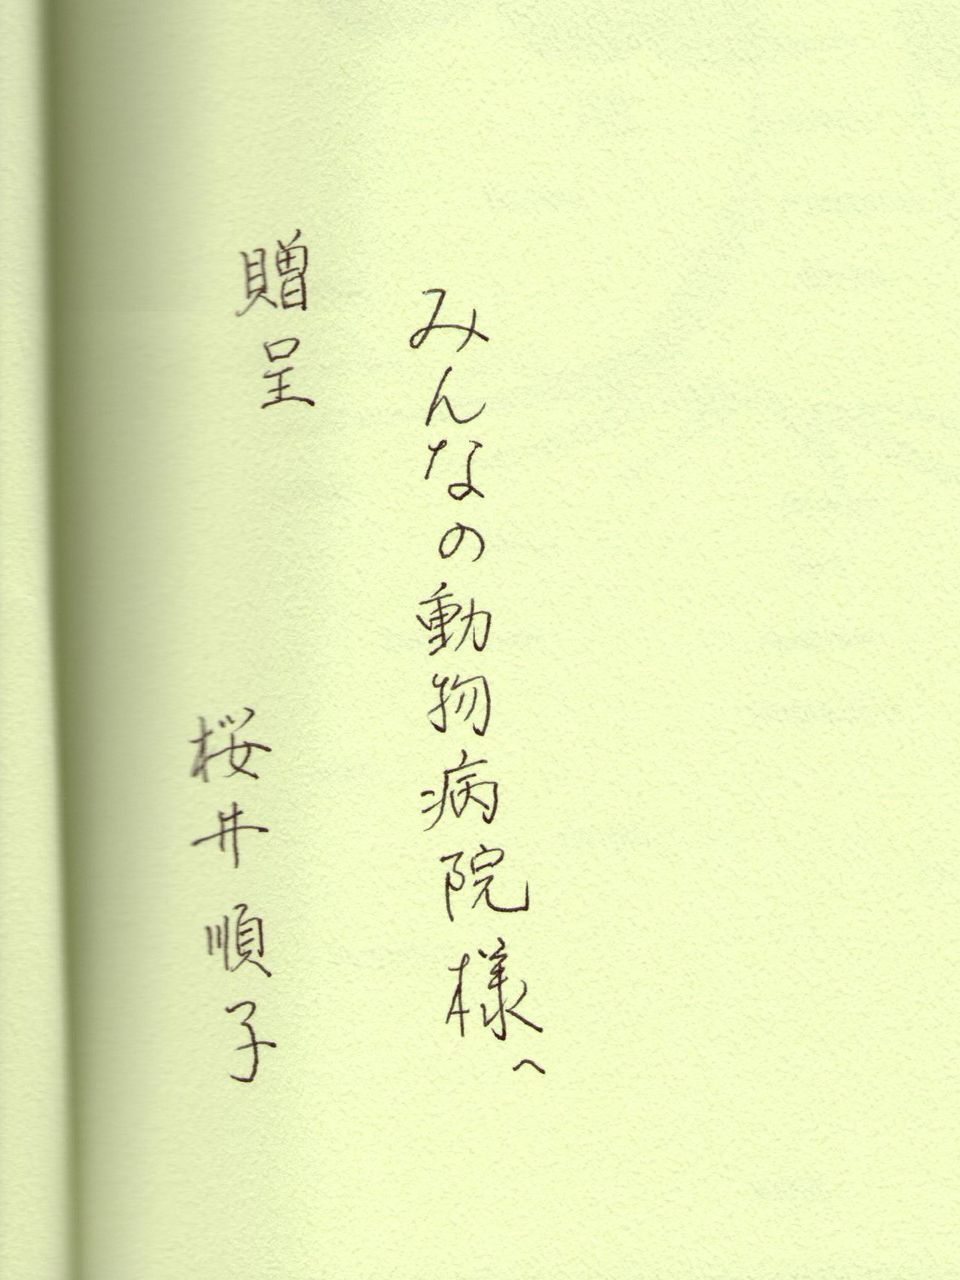 みんなの動物病院様へ
贈呈 桜井順子